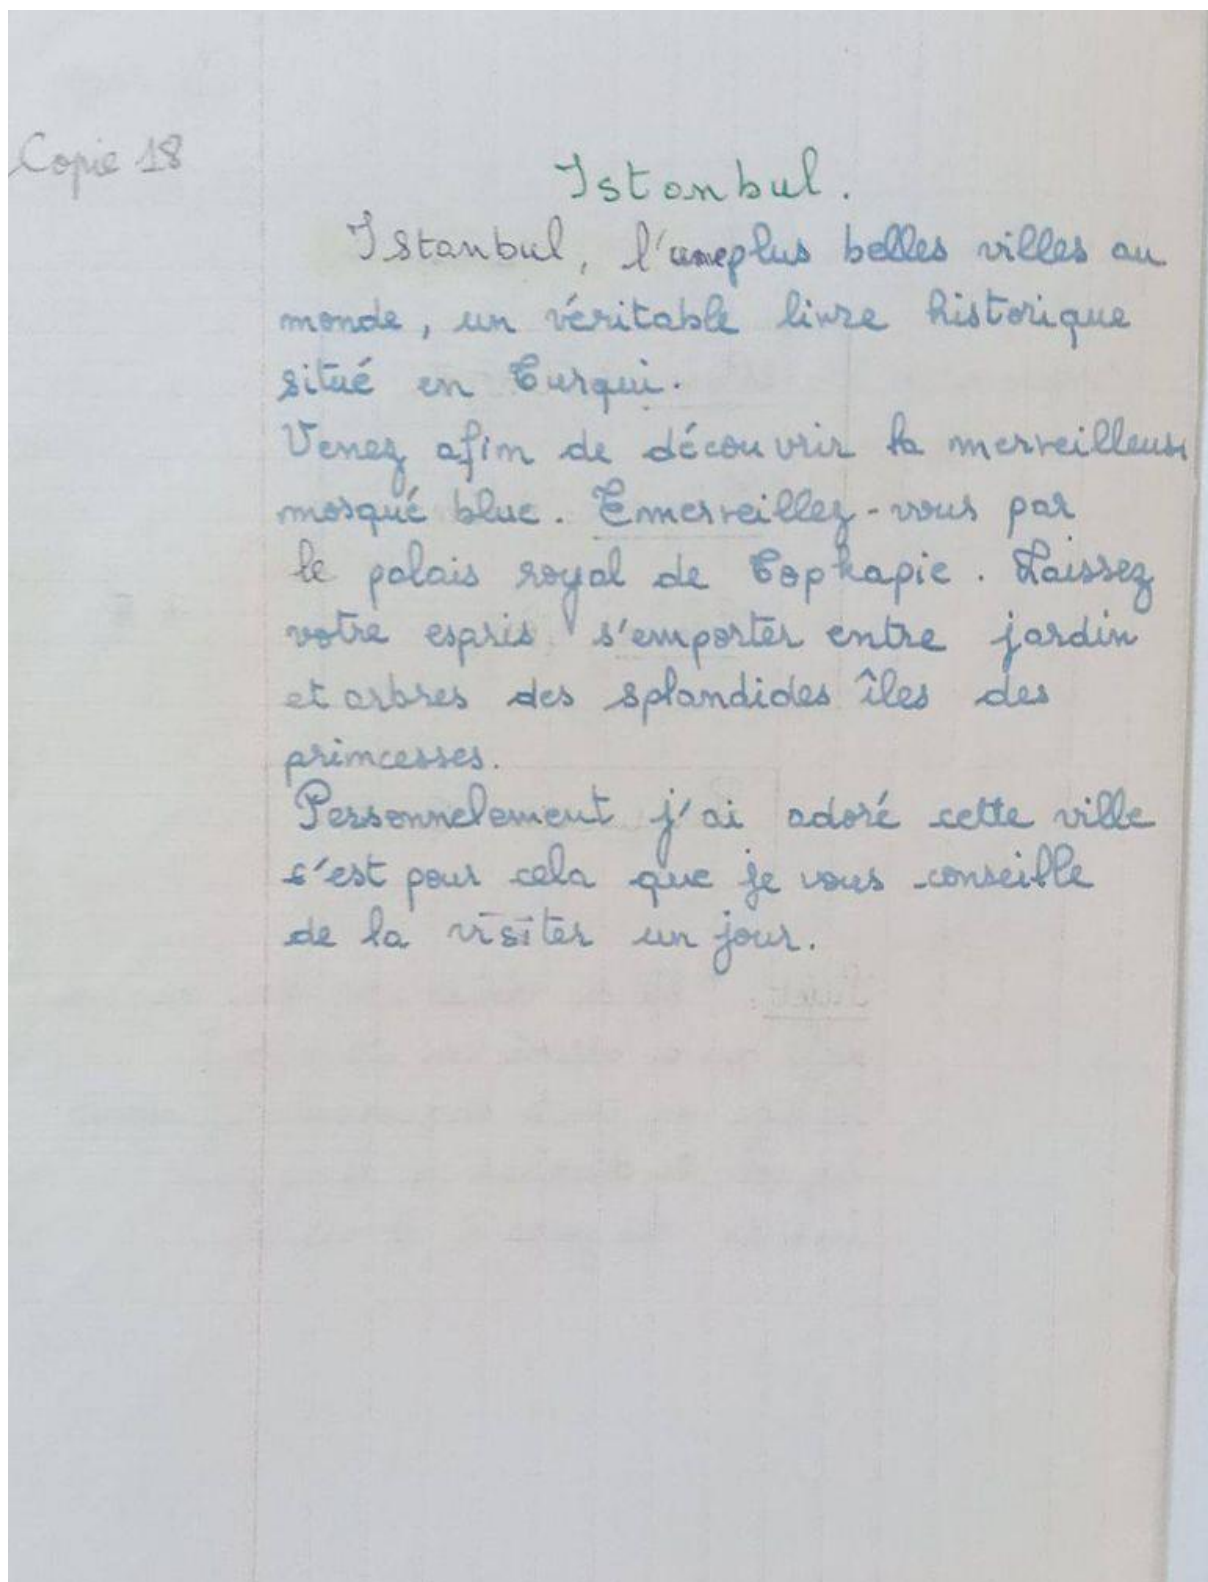 Copie 18
Istanbul.
Istanbul, l'une plus belles villes au
monde, un véritable livre historique
situé en Turqui.
Venez afin de découvrir la merveilleuse
mosqué blue. Emerveillez-vous par
le palais royal de Topkapie. Laissez
votre espris s'emporter entre jardin
et arbres des splandides îles des
princesses.
Personnelement j'ai adoré cette ville
c'est pour cela que je vous conseille
de la visiter un jour.
Sujet: